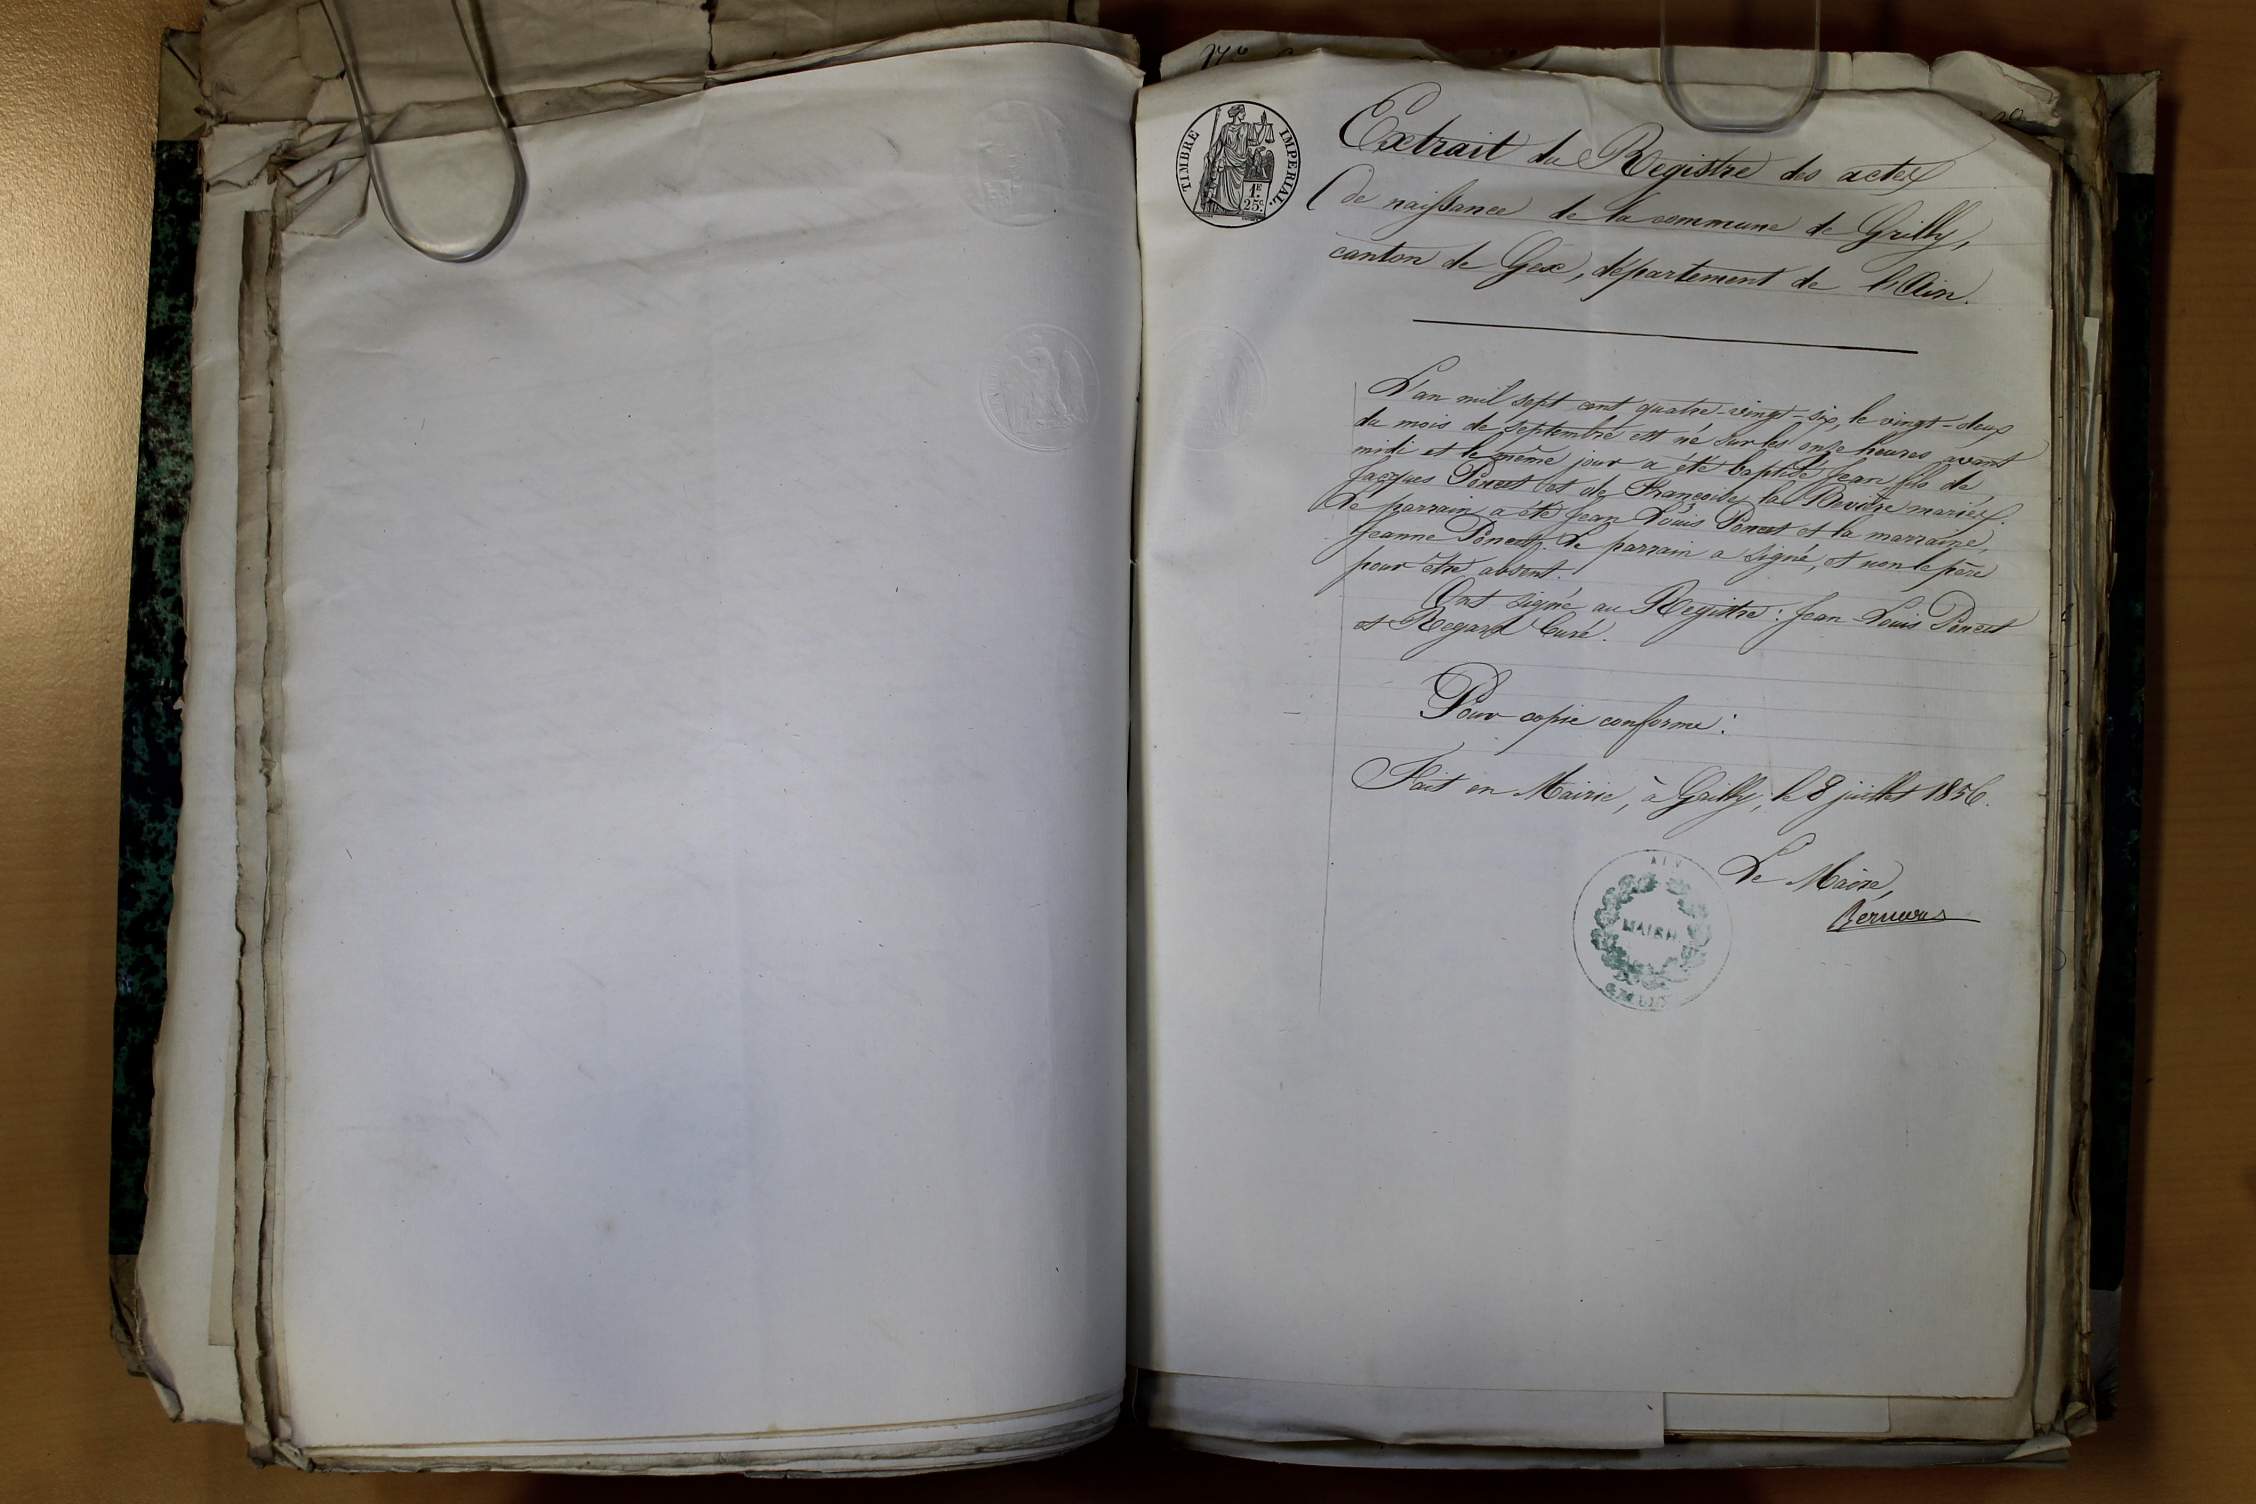 TIMBRE IMPERIAL.
1F.
25c.
Extrait du Registre des actes
de naissance de la commune de Grilly,
canton de Gex, département de l'Ain.
L'an mil sept cent quatre-vingt-six, le vingt-deux
du mois de septembre est né sur les onze heures avant
midi et le même jour a été baptisé Jean fils de
Jacques Poncet et de Françoise la Revière mariés.
Le parrain a été Jean Louis Poncet et la marraine,
Jeanne Poncet. Le parrain a signé, et non le père
pour être absent.
Ont signé au Registre : Jean-Louis Poncet
et Regard Curé.
Pour copie conforme :
Fait en Mairie, à Grilly, le 8 juillet 1856.
Le Maire,
MAIRIE
AIN
GRILLY